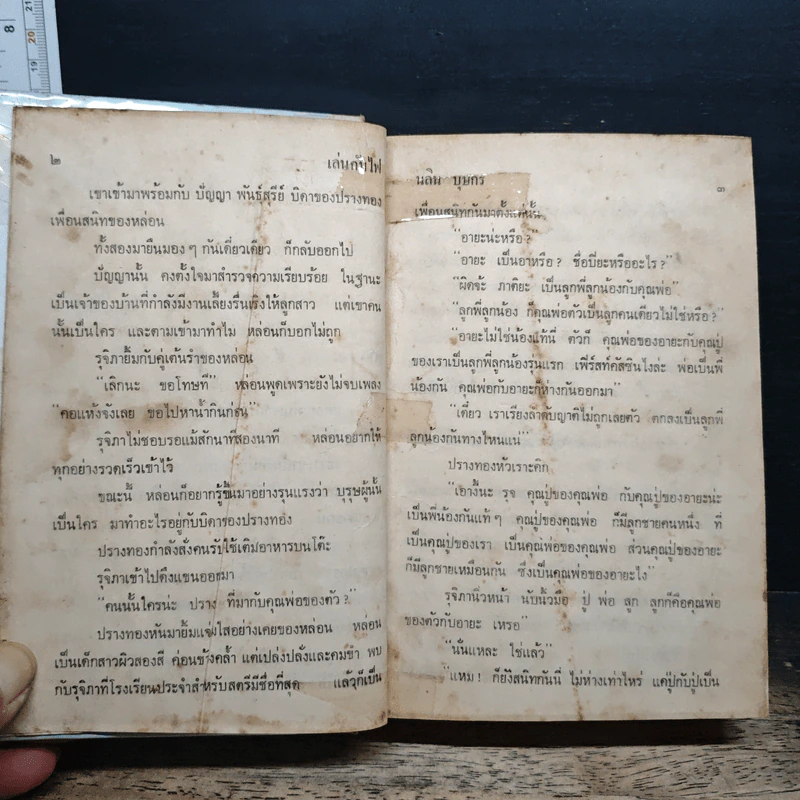 8
20
19
๒
เล่นกับไฟ
เขาเข้ามาพร้อมกับ ปัญญา พันธุ์สุรีย์ บิดาของปรางทอง
เพื่อนสนิทของหล่อน
ทั้งสองมายืนมองๆ กันเดี๋ยวเดียว ก็กลับออกไป
ปัญญานั้น คงตั้งใจมาสำรวจความเรียบร้อย ในฐานะ
เป็นเจ้าของบ้านที่กำลังมีงานเลี้ยงรื่นเริงให้ลูกสาว แต่เขาคน
นั้นเป็นใคร และตามเข้ามาทำไม หล่อนก็บอกไม่ถูก
รุจิภายิ้มกับคู่เต้นรำของหล่อน
"เลิกนะ ขอโทษที" หล่อนพูดเพราะยังไม่จบเพลง
"คอแห้งจังเลย ขอไปหาน้ำกินก่อน"
รุจิภาไม่ชอบรอแม้สักนาทีสองนาที หล่อนอยากให้
ทุกอย่างรวดเร็วเข้าไว้
ขณะนี้ หล่อนก็อยากรู้ขึ้นมาอย่างรุนแรงว่า บุรุษผู้นั้น
เป็นใคร มาทำอะไรอยู่กับบิดาของปรางทอง
ปรางทองกำลังสั่งคนรับใช้เติมอาหารบนโต๊ะ
รุจิภาเข้าไปดึงแขนออกมา
"คนนั้นใครน่ะ ปราง ที่มากับคุณพ่อของตัว?"
ปรางทองหันมายิ้มแจ่งใสอย่างเคยของหล่อน หล่อน
เป็นเด็กสาวผิวสองสี ค่อนข้างคล้ำ แต่เปล่งปลั่งและคมขำ พบ
กับรุจิภาที่โรงเรียนประจำสำหรับสตรีมีชื่อที่สุด แล้วก็เป็น
นลิน บุษกร
๓
เพื่อนสนิทกันมาตั้งแต่นั้น
"อายะน่ะหรือ?"
"อายะ เป็นอาหรือ? ชื่อบียะหรืออะไร?"
"ผิดจ้ะ ภาติยะ เป็นลูกพี่ลูกน้องกับคุณพ่อ"
"ลูกพี่ลูกน้อง ก็คุณพ่อตัวเป็นลูกคนเดียวไม่ใช่หรือ?"
"อายะไม่ใช่น้องแท้นี่ ตัวก็ คุณพ่อของอายะกับคุณปู่
ของเราเป็นลูกพี่ลูกน้องรุ่นแรก เฟิร์สท์คัสซินไงล่ะ พ่อเป็นพี่
น้องกัน คุณพ่อกับอายะก็ห่างกันออกมา"
"เดี๋ยว เราเรียงลำดับญาติไม่ถูกเลยตัว ตกลงเป็นลูกพี่
ลูกน้องกันทางไหนแน่"
ปรางทองหัวเราะคิก
"เอางี้นะ รุจ คุณปู่ของคุณพ่อ กับคุณปู่ของอายะน่ะ
เป็นพี่น้องกันแท้ๆ คุณปู่ของคุณพ่อ ก็มีลูกชายคนหนึ่ง ที่
เป็นคุณปู่ของเรา เป็นคุณพ่อของคุณพ่อ ส่วนคุณปู่ของอายะ
ก็มีลูกชายเหมือนกัน ซึ่งเป็นคุณพ่อของอายะไง"
รุจิภานิ่วหน้า นับนิ้วมือ ปู่ พ่อ ลูก ลูกก็คือคุณพ่อ
ของตัวกับอายะ เหรอ"
"นั่นแหละ ใช่แล้ว"
"แหม! ก็ยังสนิทกันนี่ ไม่ห่างเท่าไหร่ แค่ปู่กับปู่เป็น